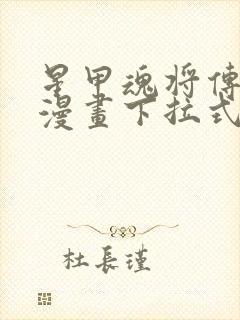 星甲魂将傳
漫畫下拉式
杜長瑾